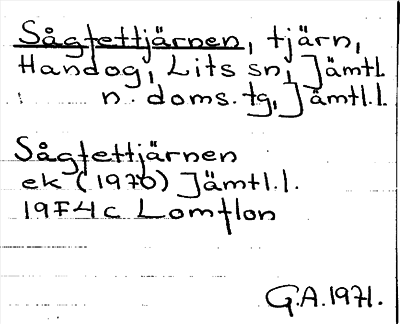 Sågtettjärnen, tjärn,
Handog, Lits sn, Jämtl.
n. doms.tg, Jämtl.l.
Sågtettjärnen
ek (1970) Jämtl.l.
19F4c Lomflon
G.A. 1971.